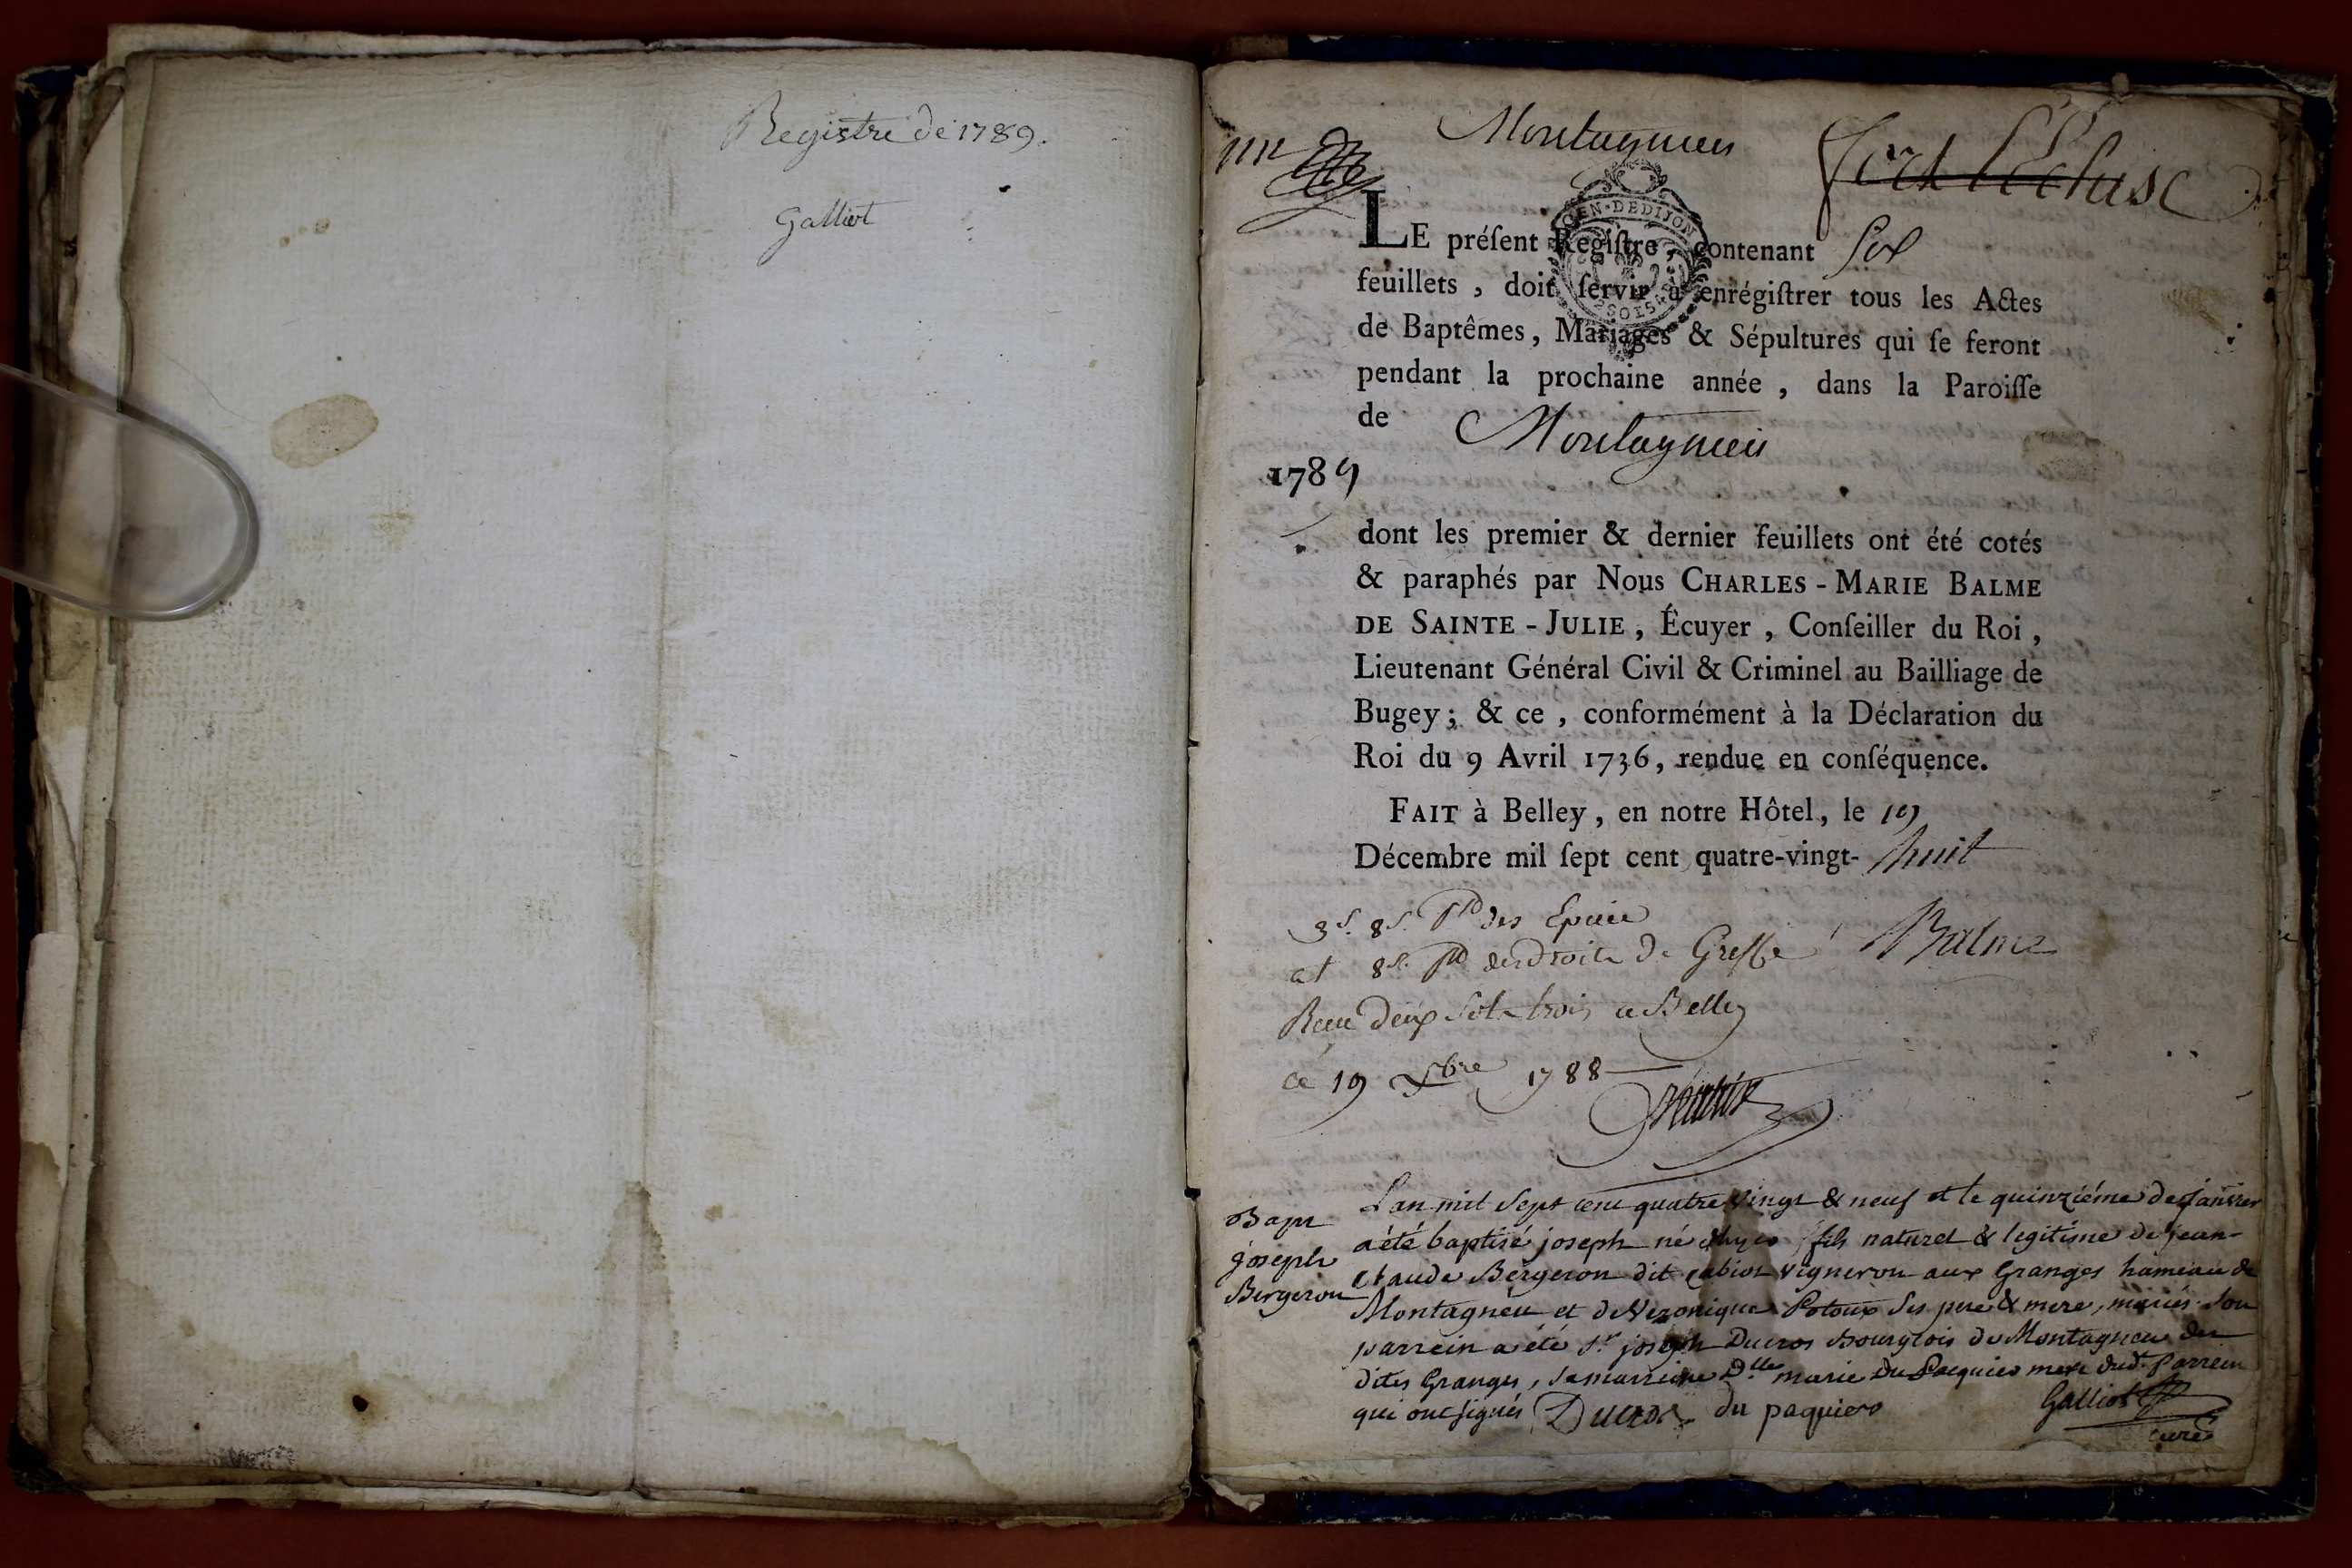 Registre de 1789.
Galliot
Montagnieu
Fort l'Ecluse
GEN·DEDIJON
LE préſent Regiſtre, contenant Six
feuillets, doit ſervir à enrégiſtrer tous les Actes
de Baptêmes, Mariages & Sépultures qui ſe feront
pendant la prochaine année, dans la Paroiſſe
de Montagnieu
1789
dont les premier & dernier feuillets ont été cotés
& paraphés par Nous CHARLES-MARIE BALME
DE SAINTE-JULIE, Écuyer, Conſeiller du Roi,
Lieutenant Général Civil & Criminel au Bailliage de
Bugey; & ce, conformément à la Déclaration du
Roi du 9 Avril 1736, rendue en conſéquence.
FAIT à Belley, en notre Hôtel, le 19
Décembre mil ſept cent quatre-vingt-huit
3s. 8s. pd des Epice
et 8s. pd des droits de Greffe Balme
Receu deux sols trois a Belley
ce 19 Xbre 1788
Bapt
joseph
Bergeron
L'an mil sept cent quatre vingt & neuf et le quinziéme de janvier
a été baptisé joseph né fils naturel & legitime de jean-
claude Bergeron dit cabiot vigneron aux Granges hameau de
Montagneu et de Veronique Potoux ses pere & mere, mariés. Son
parrein a été sr. joseph Ducros Bourgeois de Montagneu des
dites Granges, sa marreine Dlle marie Du Pacquier mere dudt. Parrein
qui ont signés Ducros du paquier Galliot
curé